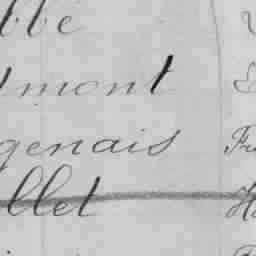 bbé
mont
genais Fr
llet H